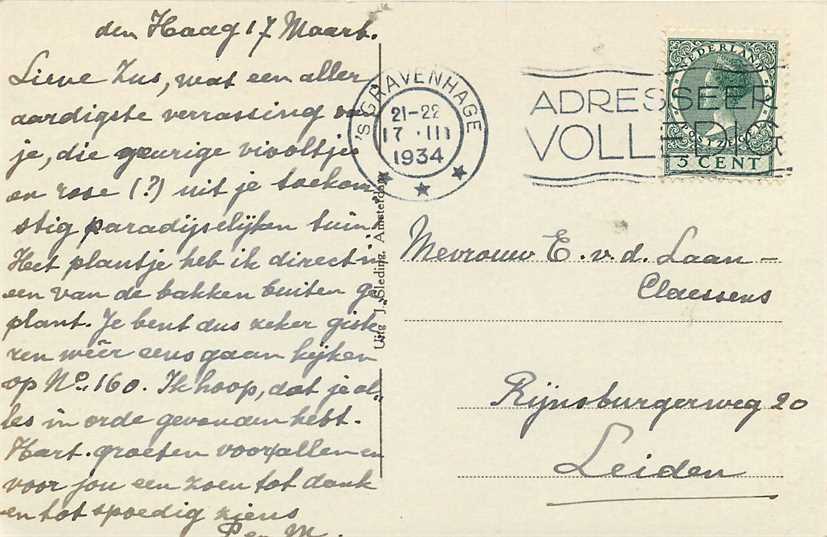 den Haag 17 Maart.
Lieve Zus, wat een aller
aardigste verrassing va
je, die geurige viooltjes
en rose (?) uit je toekom
stig paradijselijken tuin.
Het plantje heb ik direct in
een van de bakken buiten ge
plant. Je bent dus zeker giste
ren weer eens gaan kijken
op No. 160. Ik hoop, dat je al„
les in orde gevonden hebt.
Hart. groeten voor allen en
voor jou een zoen tot dank
en tot spoedig ziens
M.
Uitg. J. Sleding, Amsterdam
'S GRAVENHAGE
21-22
17 · III
1934
ADRESSEER
VOLLEDIG
NEDERLAND
5 CENT
Mevrouw E. v. d. Laan -
Claessens
Rijnsburgerweg 20
Leiden